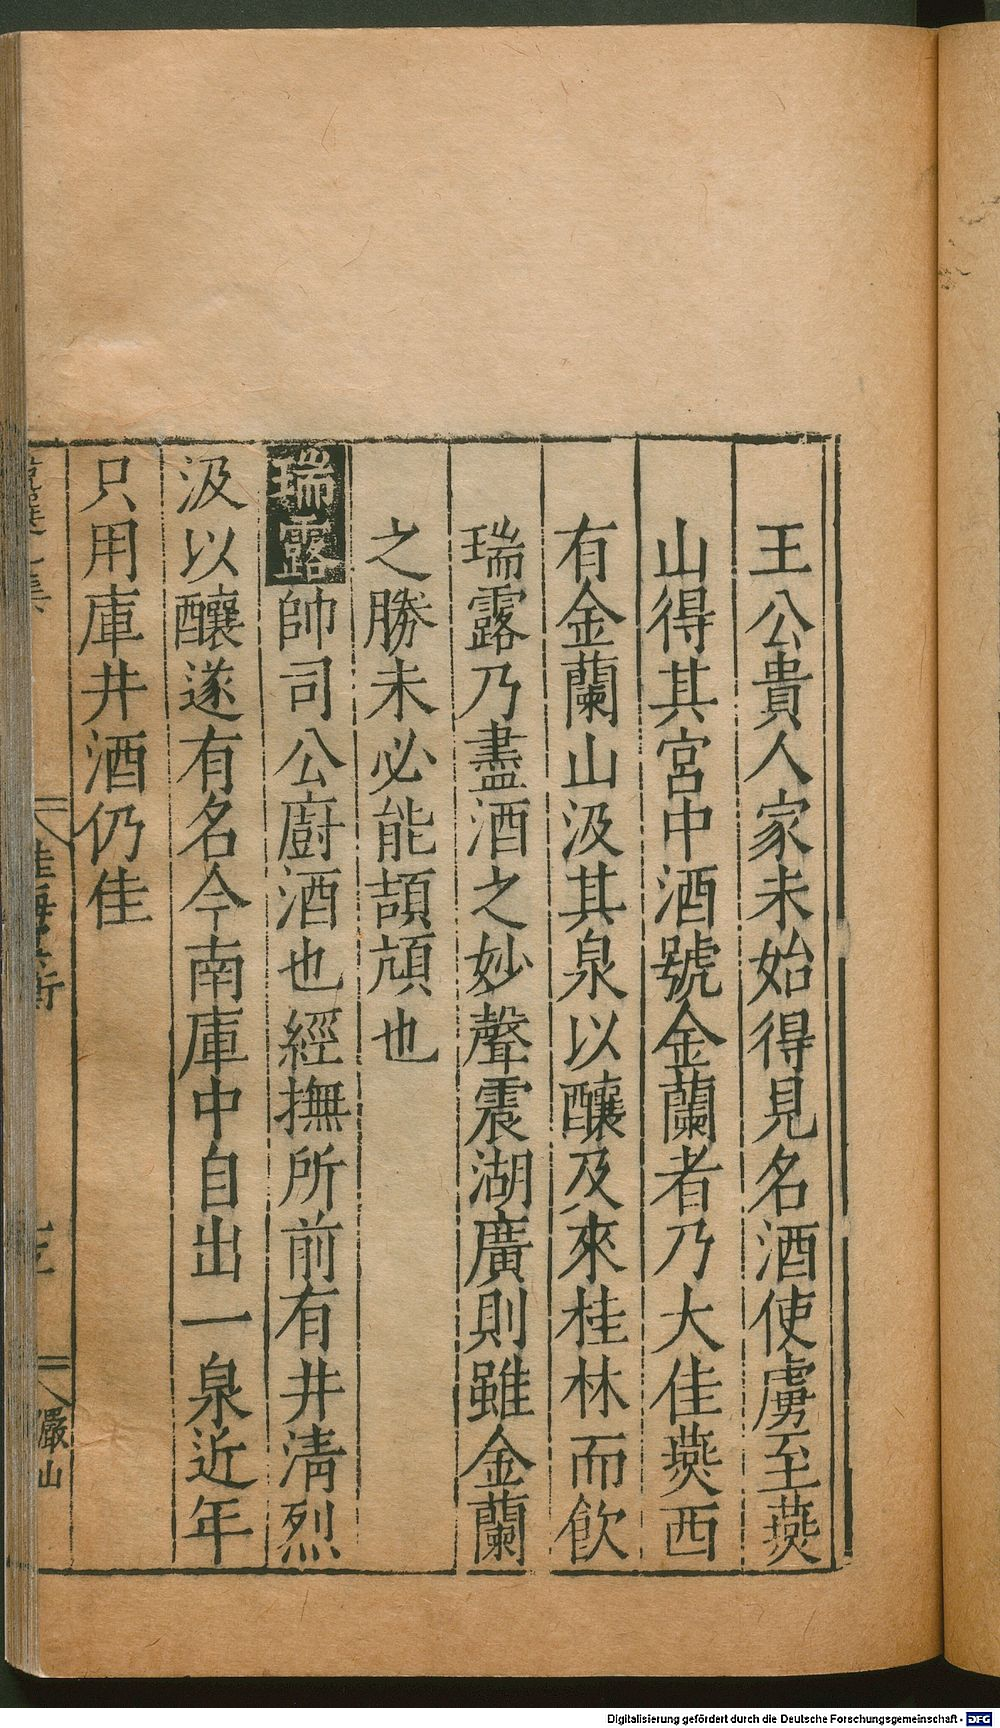 王公貴人家未始得見名酒使虜至燕
山得其宮中酒號金蘭者乃大佳燕西
有金蘭山汲其泉以釀及來桂林而飲
瑞露乃盡酒之妙聲震湖廣則雖金蘭
之勝未必能頡頏也
瑞露帥司公廚酒也經撫所前有井清烈
汲以釀遂有名今南庫中自出一泉近年
只用庫井酒仍佳
儼山
Digitalisierung gefördert durch die Deutsche Forschungsgemeinschaft - DFG